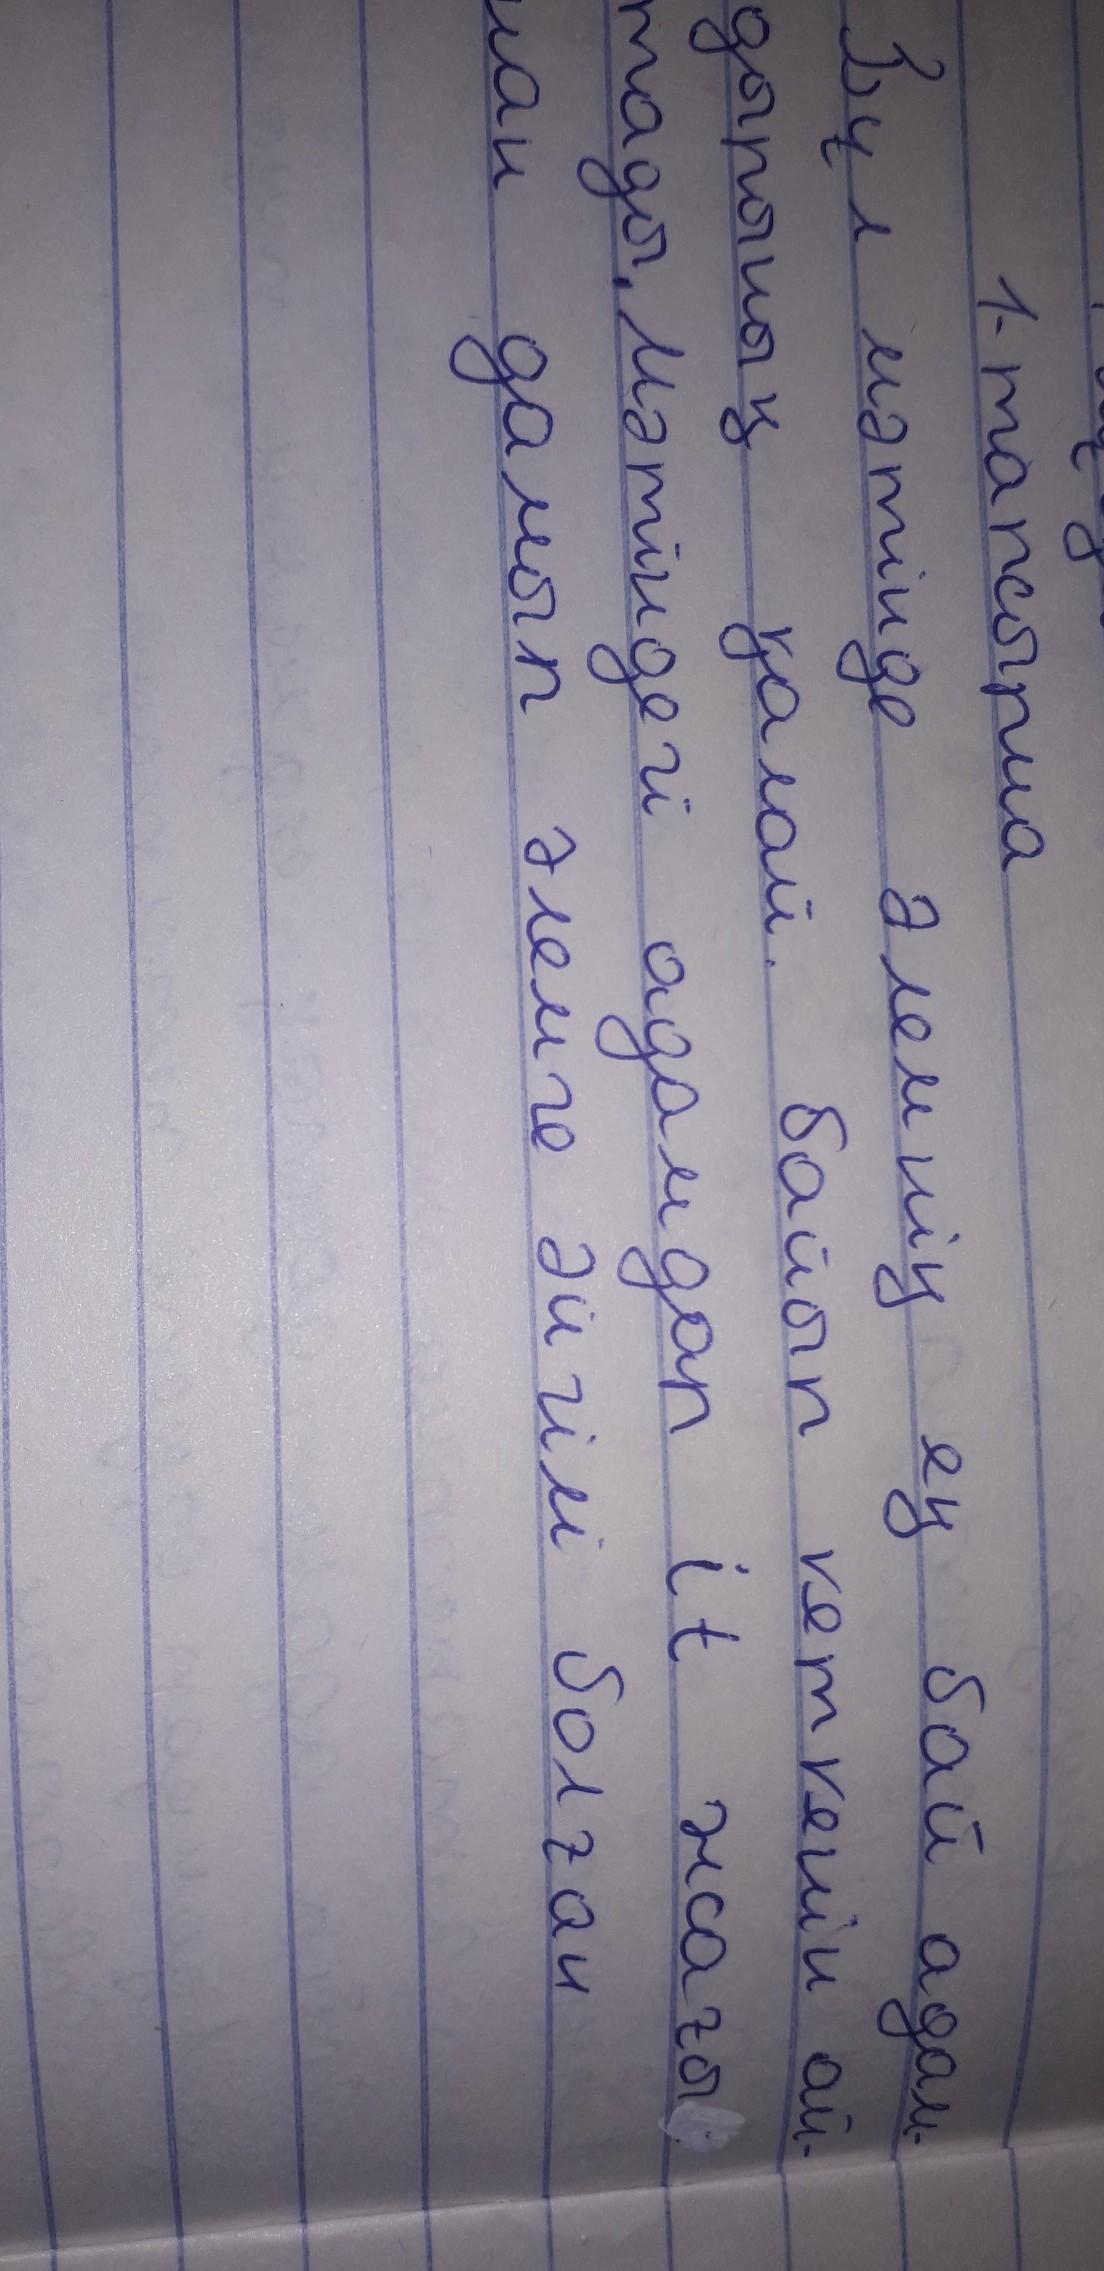 1-тапсырма
Бұл мәтінде әлемнің ең бай адам-
дарының қалай байып кеткенін ай-
тады. Мәтіндегі адамдар it жағы
нан дамып әлемге әйгілі болған